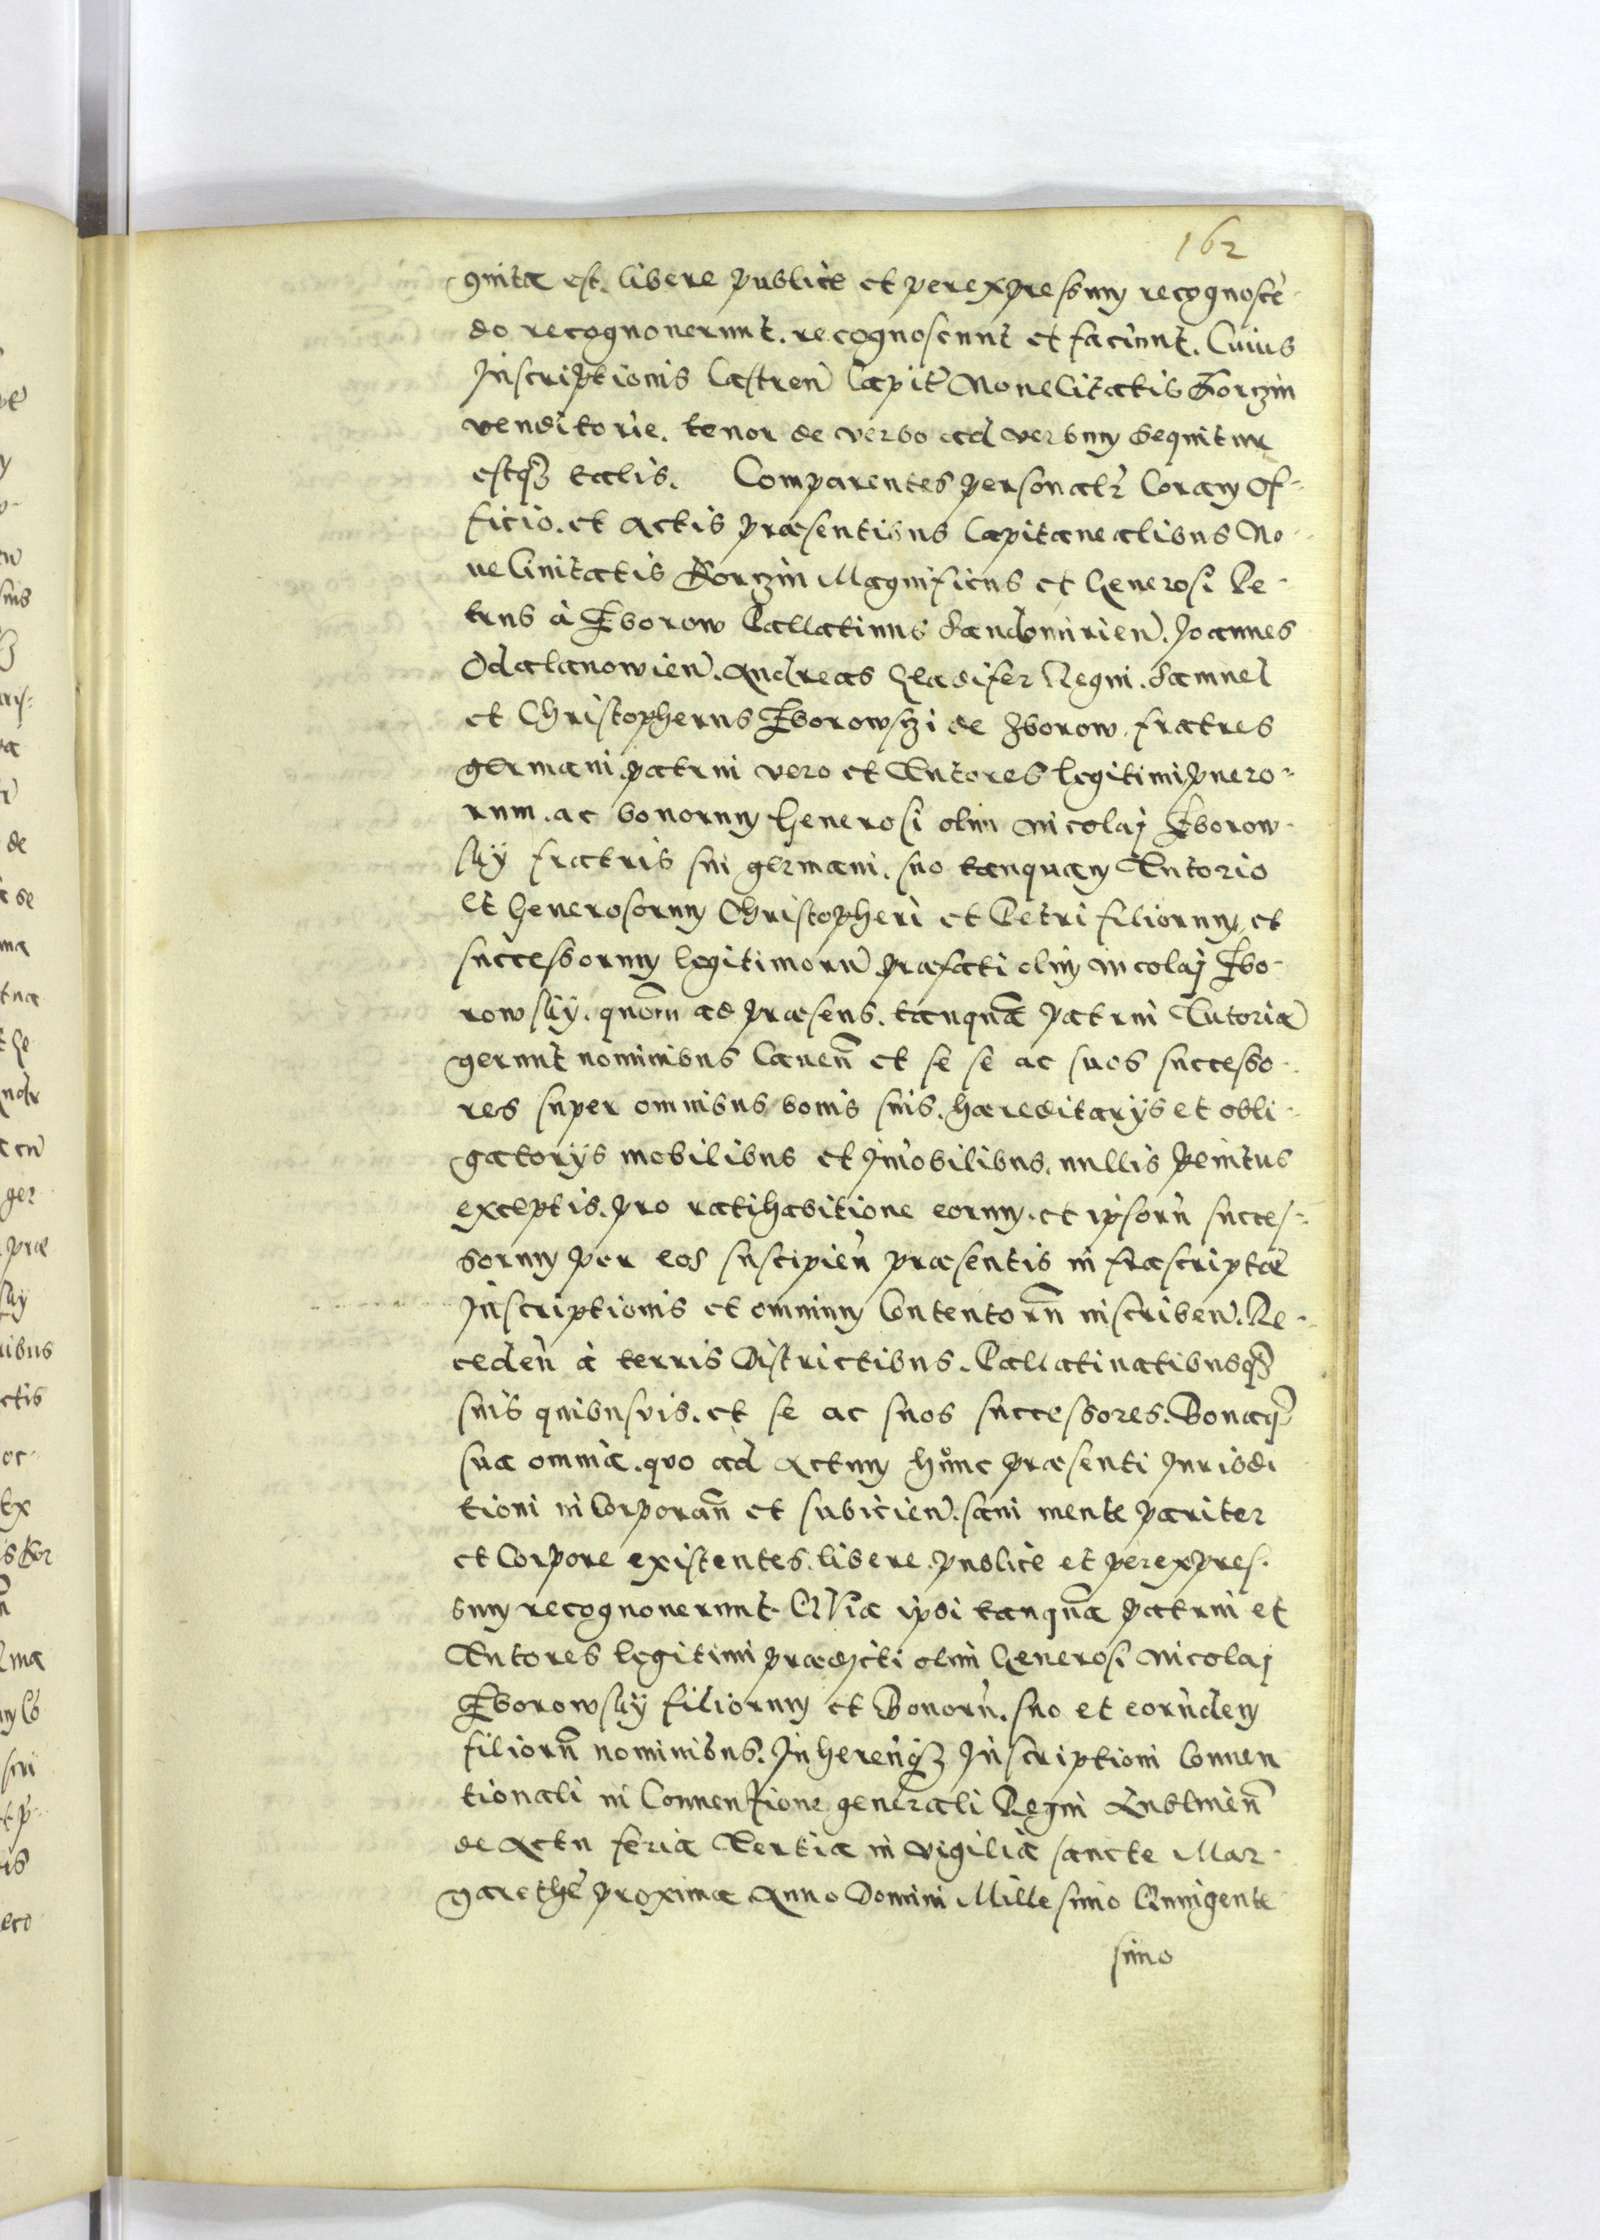 162
gnita est. libere publice et perexpressum recognoscē-
do recognouerunt. recognoscunt et faciunt. Cuius
Inscriptionis Castren̄ Capit Nouelitatis Korczin
venditorie. tenor de verbo ad verbum sequitur
estq3 talis. Comparentes personalr̄ Coram Of-
ficio. et Actis præsentibus Capitanealibus No-
ue Ciuitatis Korczin Magnificus et Generosi Pe-
trus à Zborow Pallatinus Sandomirien̄. Joannes
Odalanowien̄. Andreas Gladifer Regni. Samuel
et Christopherus Zborowszi de Zborow. fratres
germani patrui vero et Tutores legitimi puero-
rum. ac bonorum Generosi olim Nicolaj Zborow-
sky fratris sui germani. suo tanquam Tutorio
et Generosorum Christopheri et Petri filiorum, et
successorum legitimorū præfati olim Nicolaj Zbo-
rowsky. quōm ad præsens. tanquā patrui Tutoriā
gerunt nominibus Cauen̄ et se se ac suos successo-
res super omnibus bonis suis. hæreditarÿs et obli-
gatorÿs mobilibus et Im̄obilibus. nullis penitus
exceptis. pro ratihabitione eorum. et ipsorū succes-
sorum per eos suscipien̄ præsentis infrascriptæ
Inscriptionis et omnium Contentorū inscriben̄. Re-
ceden̄ à terris Districtibus. Pallatinatibusq3
suis quibusvis. et se ac suos successores. Bonaq3
sua omnia. quo ad Actum hůnc præsenti Jurisdi
tioni inCorporan̄ et subicien̄. sani mente pariter
et Corpore existentes. libere. publice et perexpres-
sum recognouerunt. QVia ipsi tanquā patrui et
Tutores legitimi prædicti olim Generosi Nicolaj
Zborowsky filiorum et Bonorū. suo et eorūdem
filiorū nominibus. Inheren̄q3 Inscriptioni Conuen
tionali in Conuentione generali Regni Lublinen̄
de Actu feria Tertia in vigilia sancte Mar-
garethe proxima Anno Domini Millesimo Quingente
simo